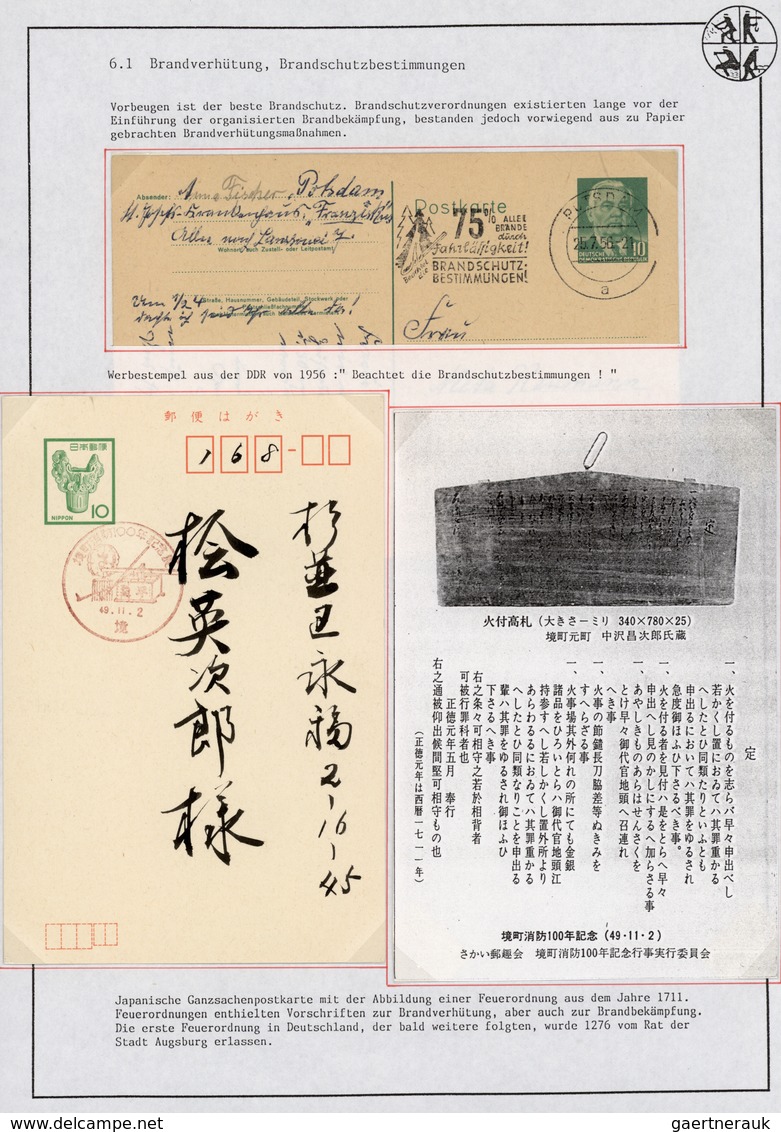 6.1 Brandverhütung, Brandschutzbestimmungen
Vorbeugen ist der beste Brandschutz. Brandschutzverordnungen existierten lange vor der
Einführung der organisierten Brandbekämpfung, bestanden jedoch vorwiegend aus zu Papier
gebrachten Brandverhütungsmaßnahmen.
Absender: Anna Fischer, Potsdam
Wohnort, auch Zustell- oder Leitpostamt
Straße, Hausnummer, Gebäudeteil, Stockwerk oder
Postkarte
75% ALLER
BRÄNDE
durch
Fahrlässigkeit!
Beachtet
die
BRANDSCHUTZ-
BESTIMMUNGEN!
POTSDAM
25.7.56
a
DEUTSCHE
DEMOKRATISCHE REPUBLIK
10
Frau
Werbestempel aus der DDR von 1956 :" Beachtet die Brandschutzbestimmungen ! "
郵便はがき
日本郵便
NIPPON 10
168-
境町消防100年記念
49.11.2
境
杉並区永福2-16-45
桧英次郎様
定
火付高札(大きさーミリ 340×780×25)
境町元町 中沢昌次郎氏蔵
定
一、火を付るものを志らバ早々申出べし
若かくし置におゐてハ其罪重かる
へしたとひ同類たりといふとも
申出るにおいてハ其罪をゆるされ
急度御ほふひ下さるべき事。
一、火を付る者を見付ハ是をとらへ早々
申出へし見のかしにするへ加らさる事
一、あやしきものあらはせんさくを
とけ早々御代官地頭へ召連れ
へき事
一、火事の節鑓長刀脇差等ぬきみを
すへらざる事
一、火事場其外何れの所にても金銀
諸品をひろいとらハ御代官地頭江
持参すへし若しかくし置外所より
あらわるるにおゐてハ其罪重かる
へしたとひ同類なりことを申出る
輩ハ其罪をゆるされ御ほふひ
下さるへき事
右之条々可相守之若於相背者
可被行罪科者也
正徳元年五月 奉行
右之通被仰出候間堅可相守もの也
(正徳元年は西暦一七一一年)
境町消防100年記念(49・11・2)
さかい郵趣会 境町消防100年記念行事実行委員会
Japanische Ganzsachenpostkarte mit der Abbildung einer Feuerordnung aus dem Jahre 1711.
Feuerordnungen enthielten Vorschriften zur Brandverhütung, aber auch zur Brandbekämpfung.
Die erste Feuerordnung in Deutschland, der bald weitere folgten, wurde 1276 vom Rat der
Stadt Augsburg erlassen.
gaertnerauk